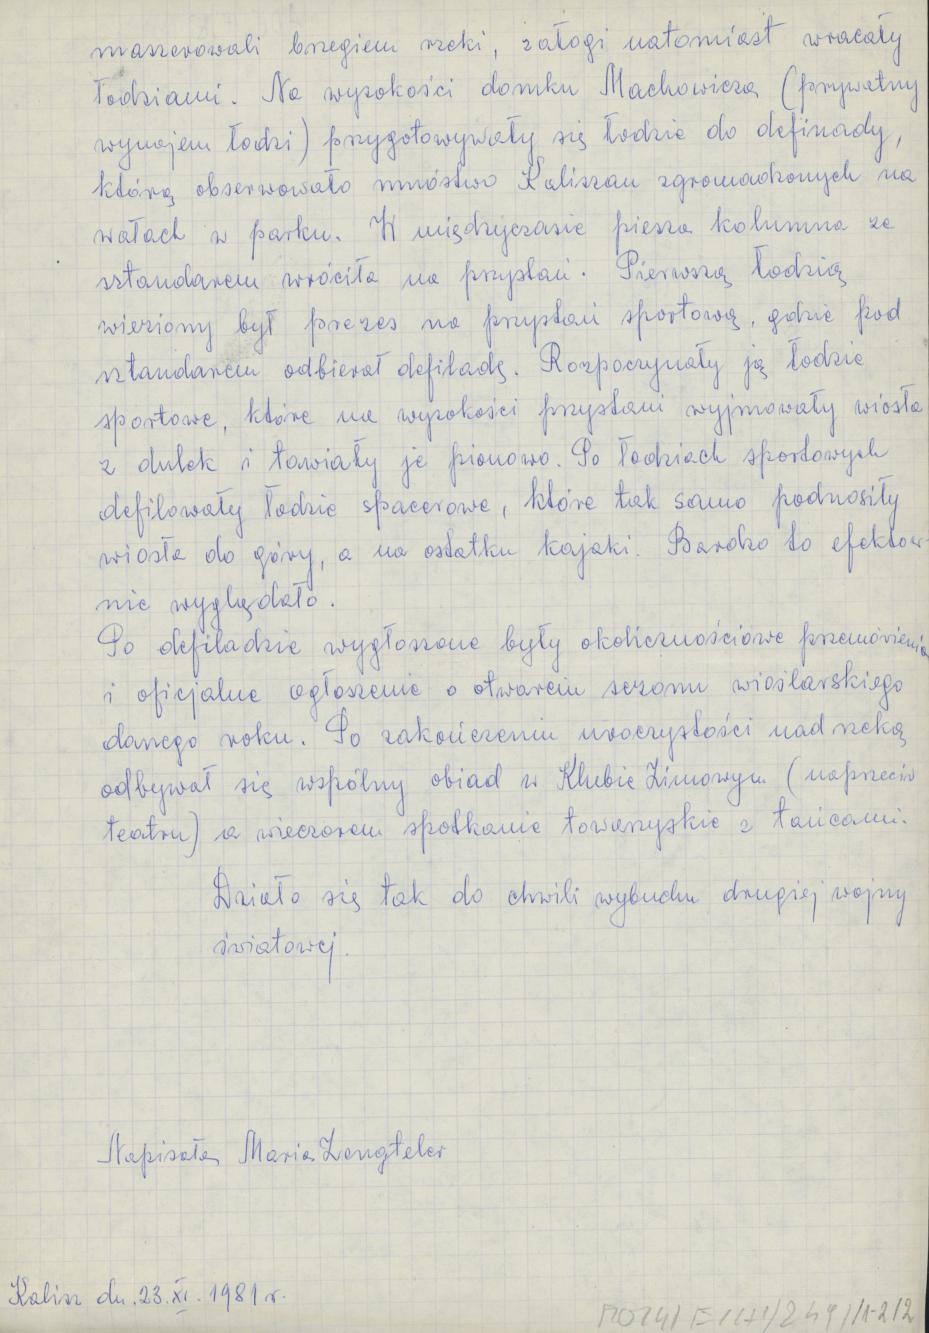 maszerowali brzegiem rzeki, załogi natomiast wracały
łodziami. Na wysokości domku Machowicza (prywatny
wynajem łodzi) przygotowywały się łodzie do defirady,
którą obserwowało mnóstwo Kaliszan zgromadzonych na
wałach w parku. W międzyczasie piesza kolumna ze
sztandarem wróciła na przystań. Pierwszą łodzią
wieziony był prezes na przystań sportową, gdzie pod
sztandarem odbierał defiladę. Rozpoczynały ją łodzie
sportowe, które na wysokości przystani wyjmowały wiosła
z dulek i stawiały je pionowo. Po łodziach sportowych
defilowały łodzie spacerowe, które tak samo podnosiły
wiosła do góry, a na ostatku kajaki. Bardzo to efektow-
nie wyglądało.
Po defiladzie wygłoszone były okolicznościowe przemówienia
i oficjalne ogłoszenie o otwarciu sezonu wioślarskiego
danego roku. Po zakończeniu uroczystości nad rzeką
odbywał się wspólny obiad w Klubie Zimowym (naprzeciw
teatru) a wieczorem spotkanie towarzyskie z tańcami.
Działo się tak do chwili wybuchu drugiej wojny
światowej.
Napisała Maria Zengteler
Kalisz dn. 23.XI.1981 r.